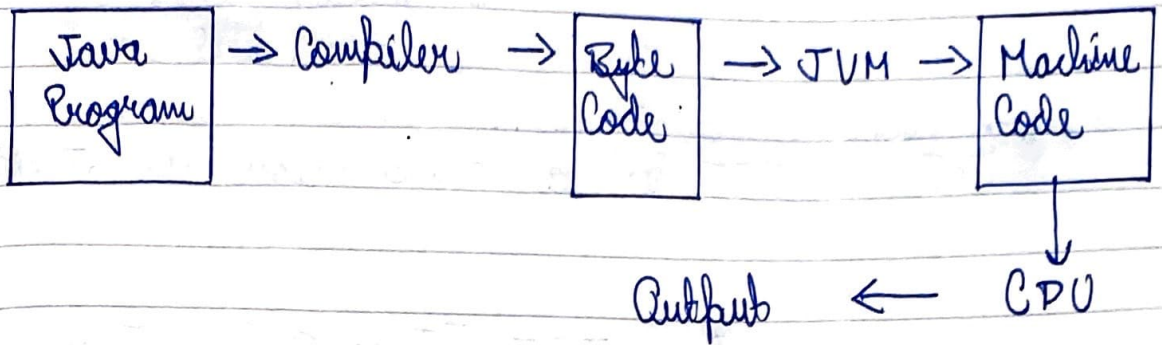 Java Program → Compiler → Byte Code → JVM → Machine Code
↓
Output ← CPU